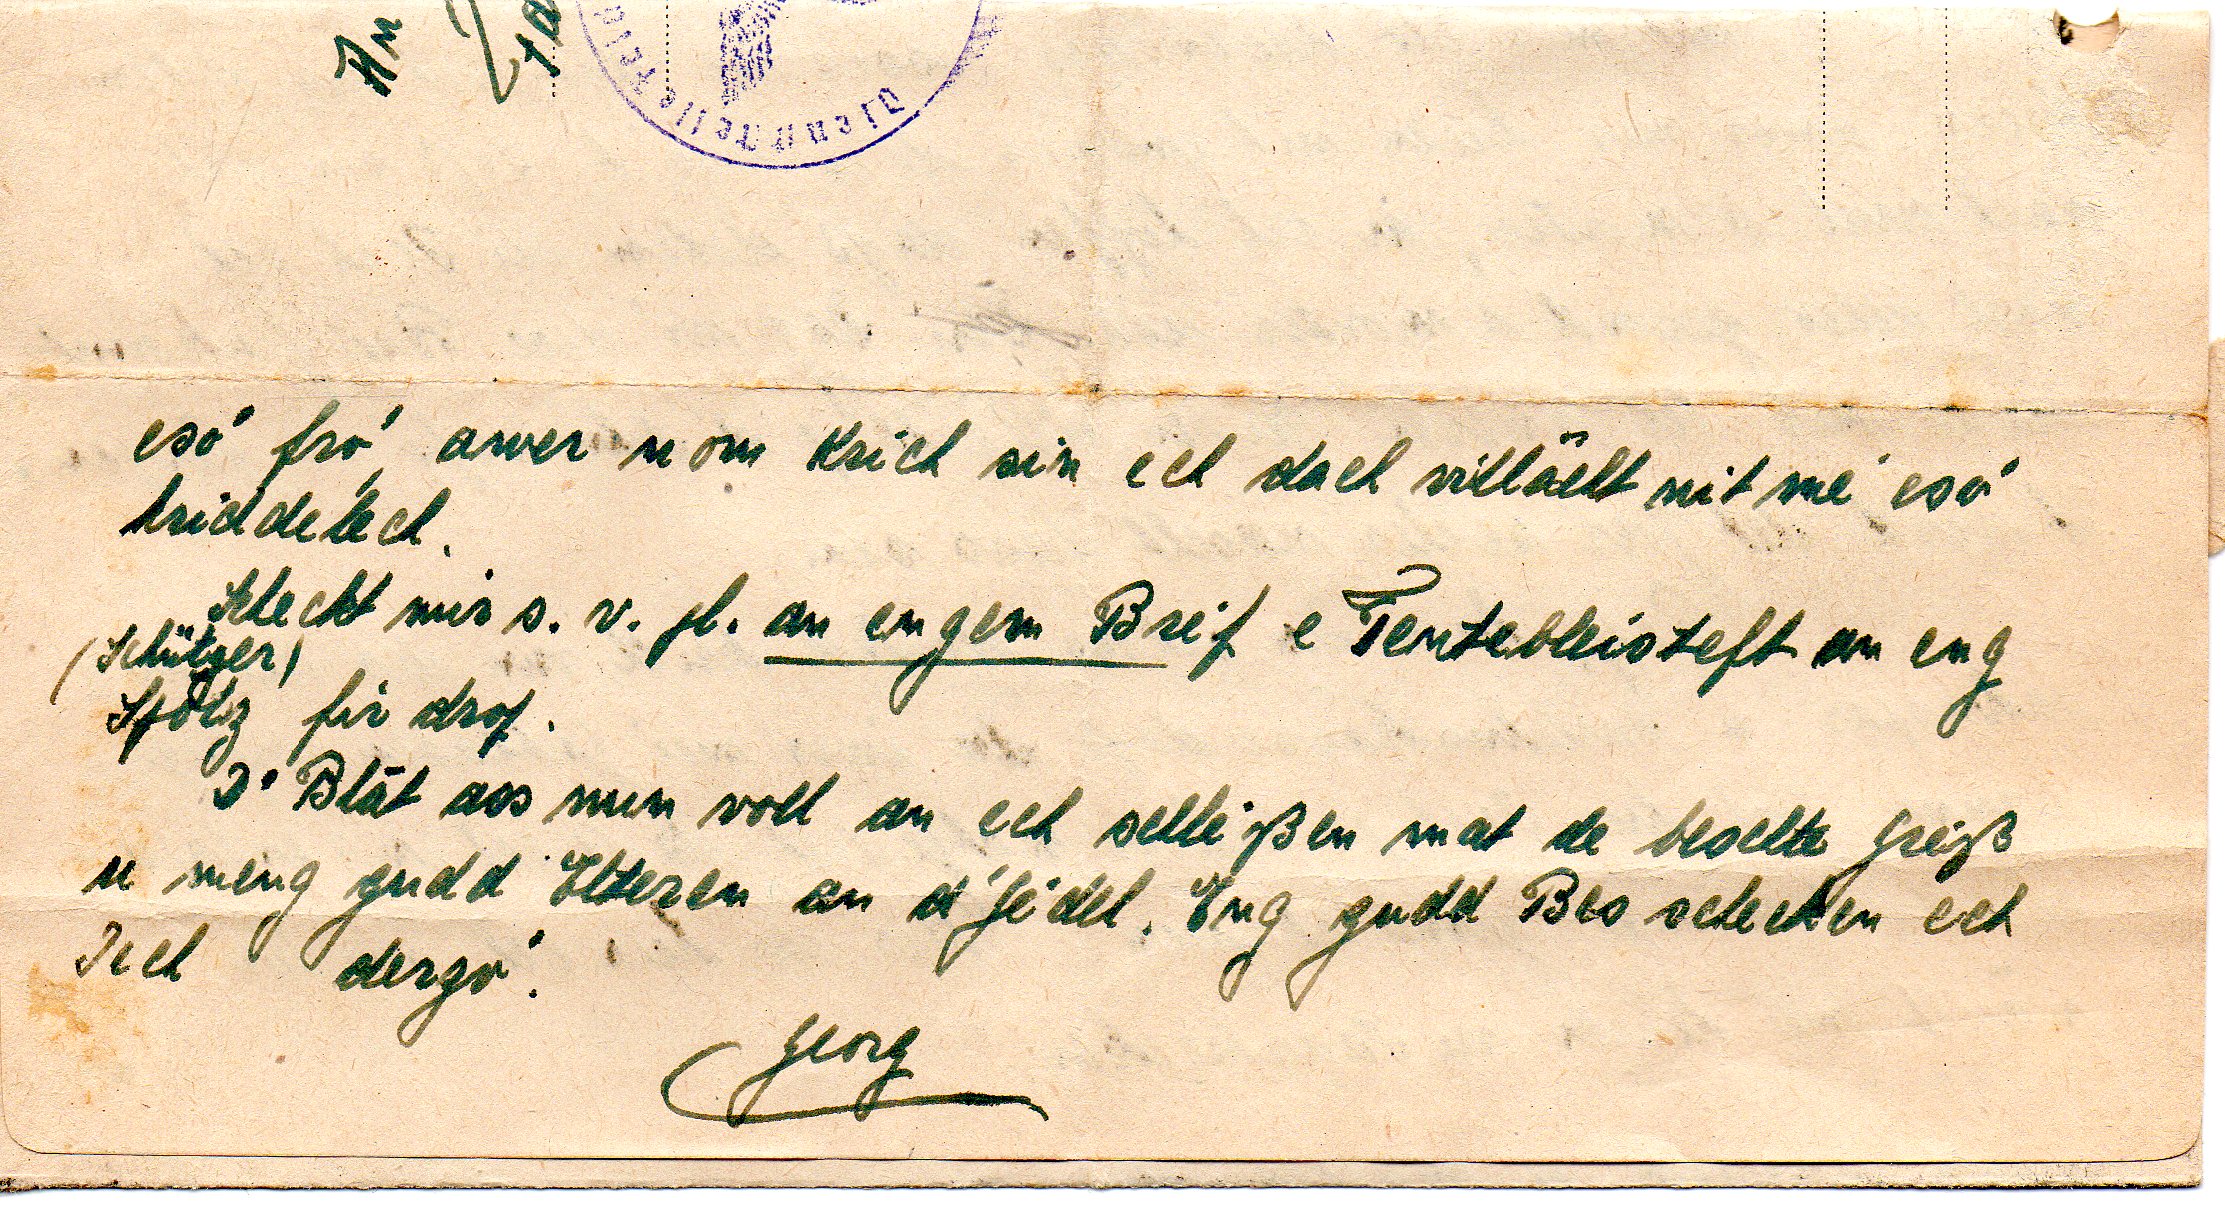 An
Dienststelle Feldp
esó fró, awer nom Krich sin ech dach villäilt nit mé esó
kriddelech.
Scheckt mir s. v. pl. an engem Bréif e Tentebleisteft an eng
(Schützer)
Spötz fir drop.
D'Blát ass nun voll an ech schléißen mat de beschte Gréiß
u meng gudd Elteren an d'Gédel. Eng gudd Bes schecken ech
Iech dergó.
Georg